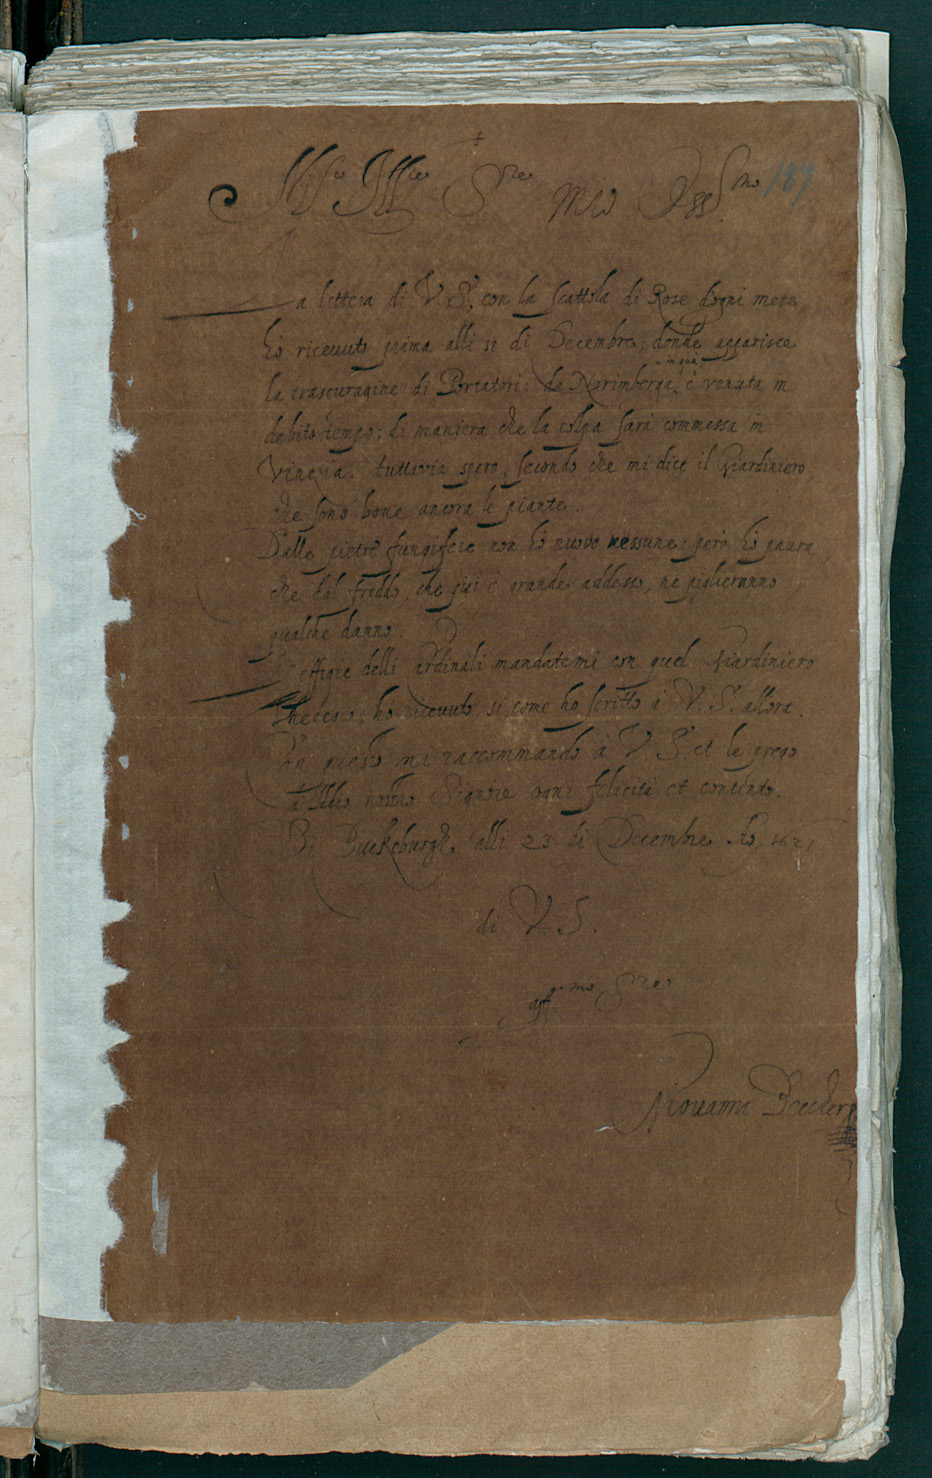 +
Ill.re S.re Mio Oss.mo 187
La lettera di V.S. con la scattola di Rose d'ogni mese,
hò riceuuto prima alli 11 di Decembre, donde apparisce
in quà
la trascuragine di Portatori: da Norimberga è venuta in
debito tempo; di maniera che la colpa sarà commessa in
Vinezia. tuttavia spero, secondo che mi dice il Giardiniero,
che sono bone ancora le piante.
Dalle pietre fungifere non hò nuove nessune: però hò paura
che dal freddo, che qui è grande addesso, ne piglieranno
qualche danno.
L'effigie delli Cardinali mandatemi con quel Giardiniero
Thedesco, hò riceuuto, si come ho scritto à V.S. allora.
Con questo mi raccommando à V.S. et le prego
à Iddio nostro Signore ogni felicità et contento.
Di Buckeburgh, alli 23 di Decembre, 1621
di V.S.
aff.mo S.re
Giouanni